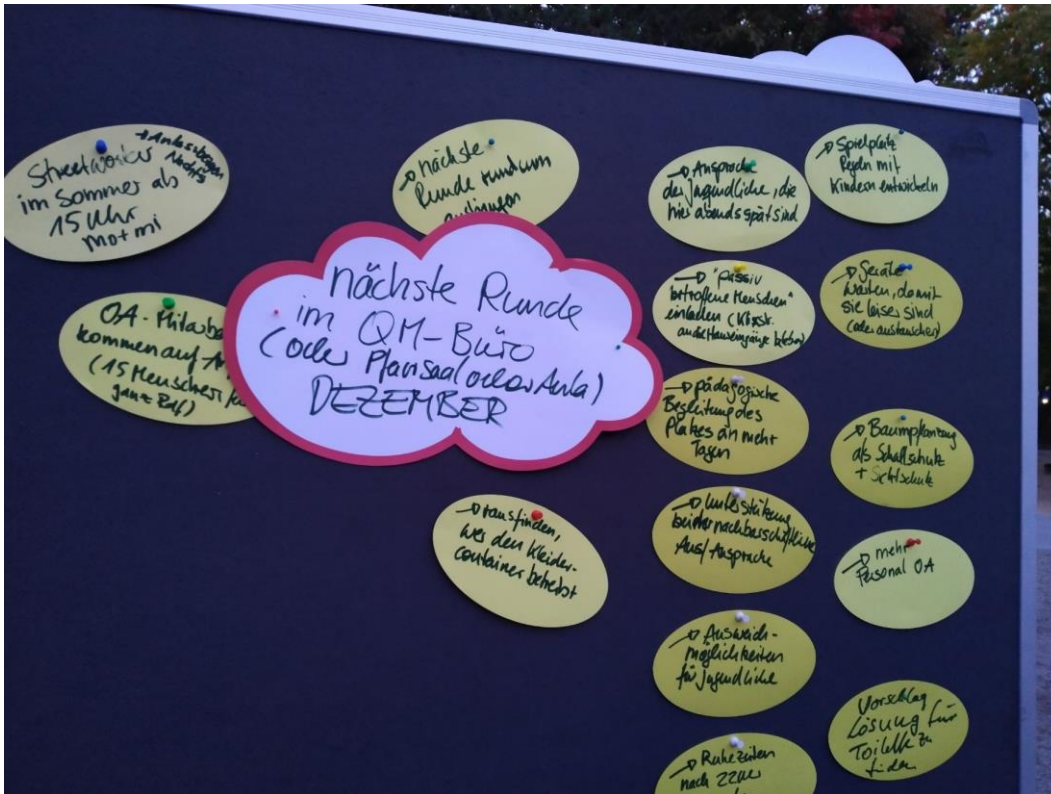 Streetworker
→ Anlassbezogen
Nachts
im Sommer ab
15 Uhr
Mo + Mi
OA - Mitarbei
kommen auf
(15 Menschen für
ganz
→ nächste
Runde rundum
aushängen
nächste Runde
im QM-Büro
(oder Pfarrsaal oder Aula)
DEZEMBER
→ rausfinden,
wer den Kleider-
container betreibt
→ Ansprache
der Jugendliche, die
hier abends spät sind
→ "passiv
betroffene Menschen"
einladen
an die Hauseingänge
→ pädagogische
Begleitung des
Platzes an mehr
Tagen
→ Unterstützung
bei der nachbarschaftliche
Aus/Ansprache
→ Ausweich-
möglichkeiten
für Jugendliche
→ Ruhezeiten
nach 22 Uhr
→ Spielplatz
Regeln mit
Kindern entwickeln
→ Geräte
warten, damit
sie leiser sind
(oder austauschen)
→ Baumpflanzung
als Schallschutz
+ Sichtschutz
→ mehr
Personal OA
Vorschlag
Lösung für
Toilette zu
finden